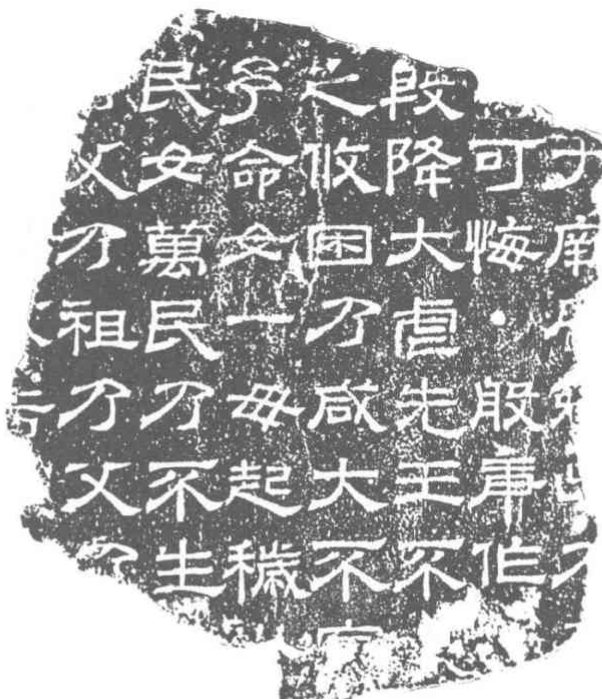 可悔·般庚作
殷降大虐先王不
之攸困乃咸大不
予命女一毋起穢
民女萬民乃不生
父乃祖乃父